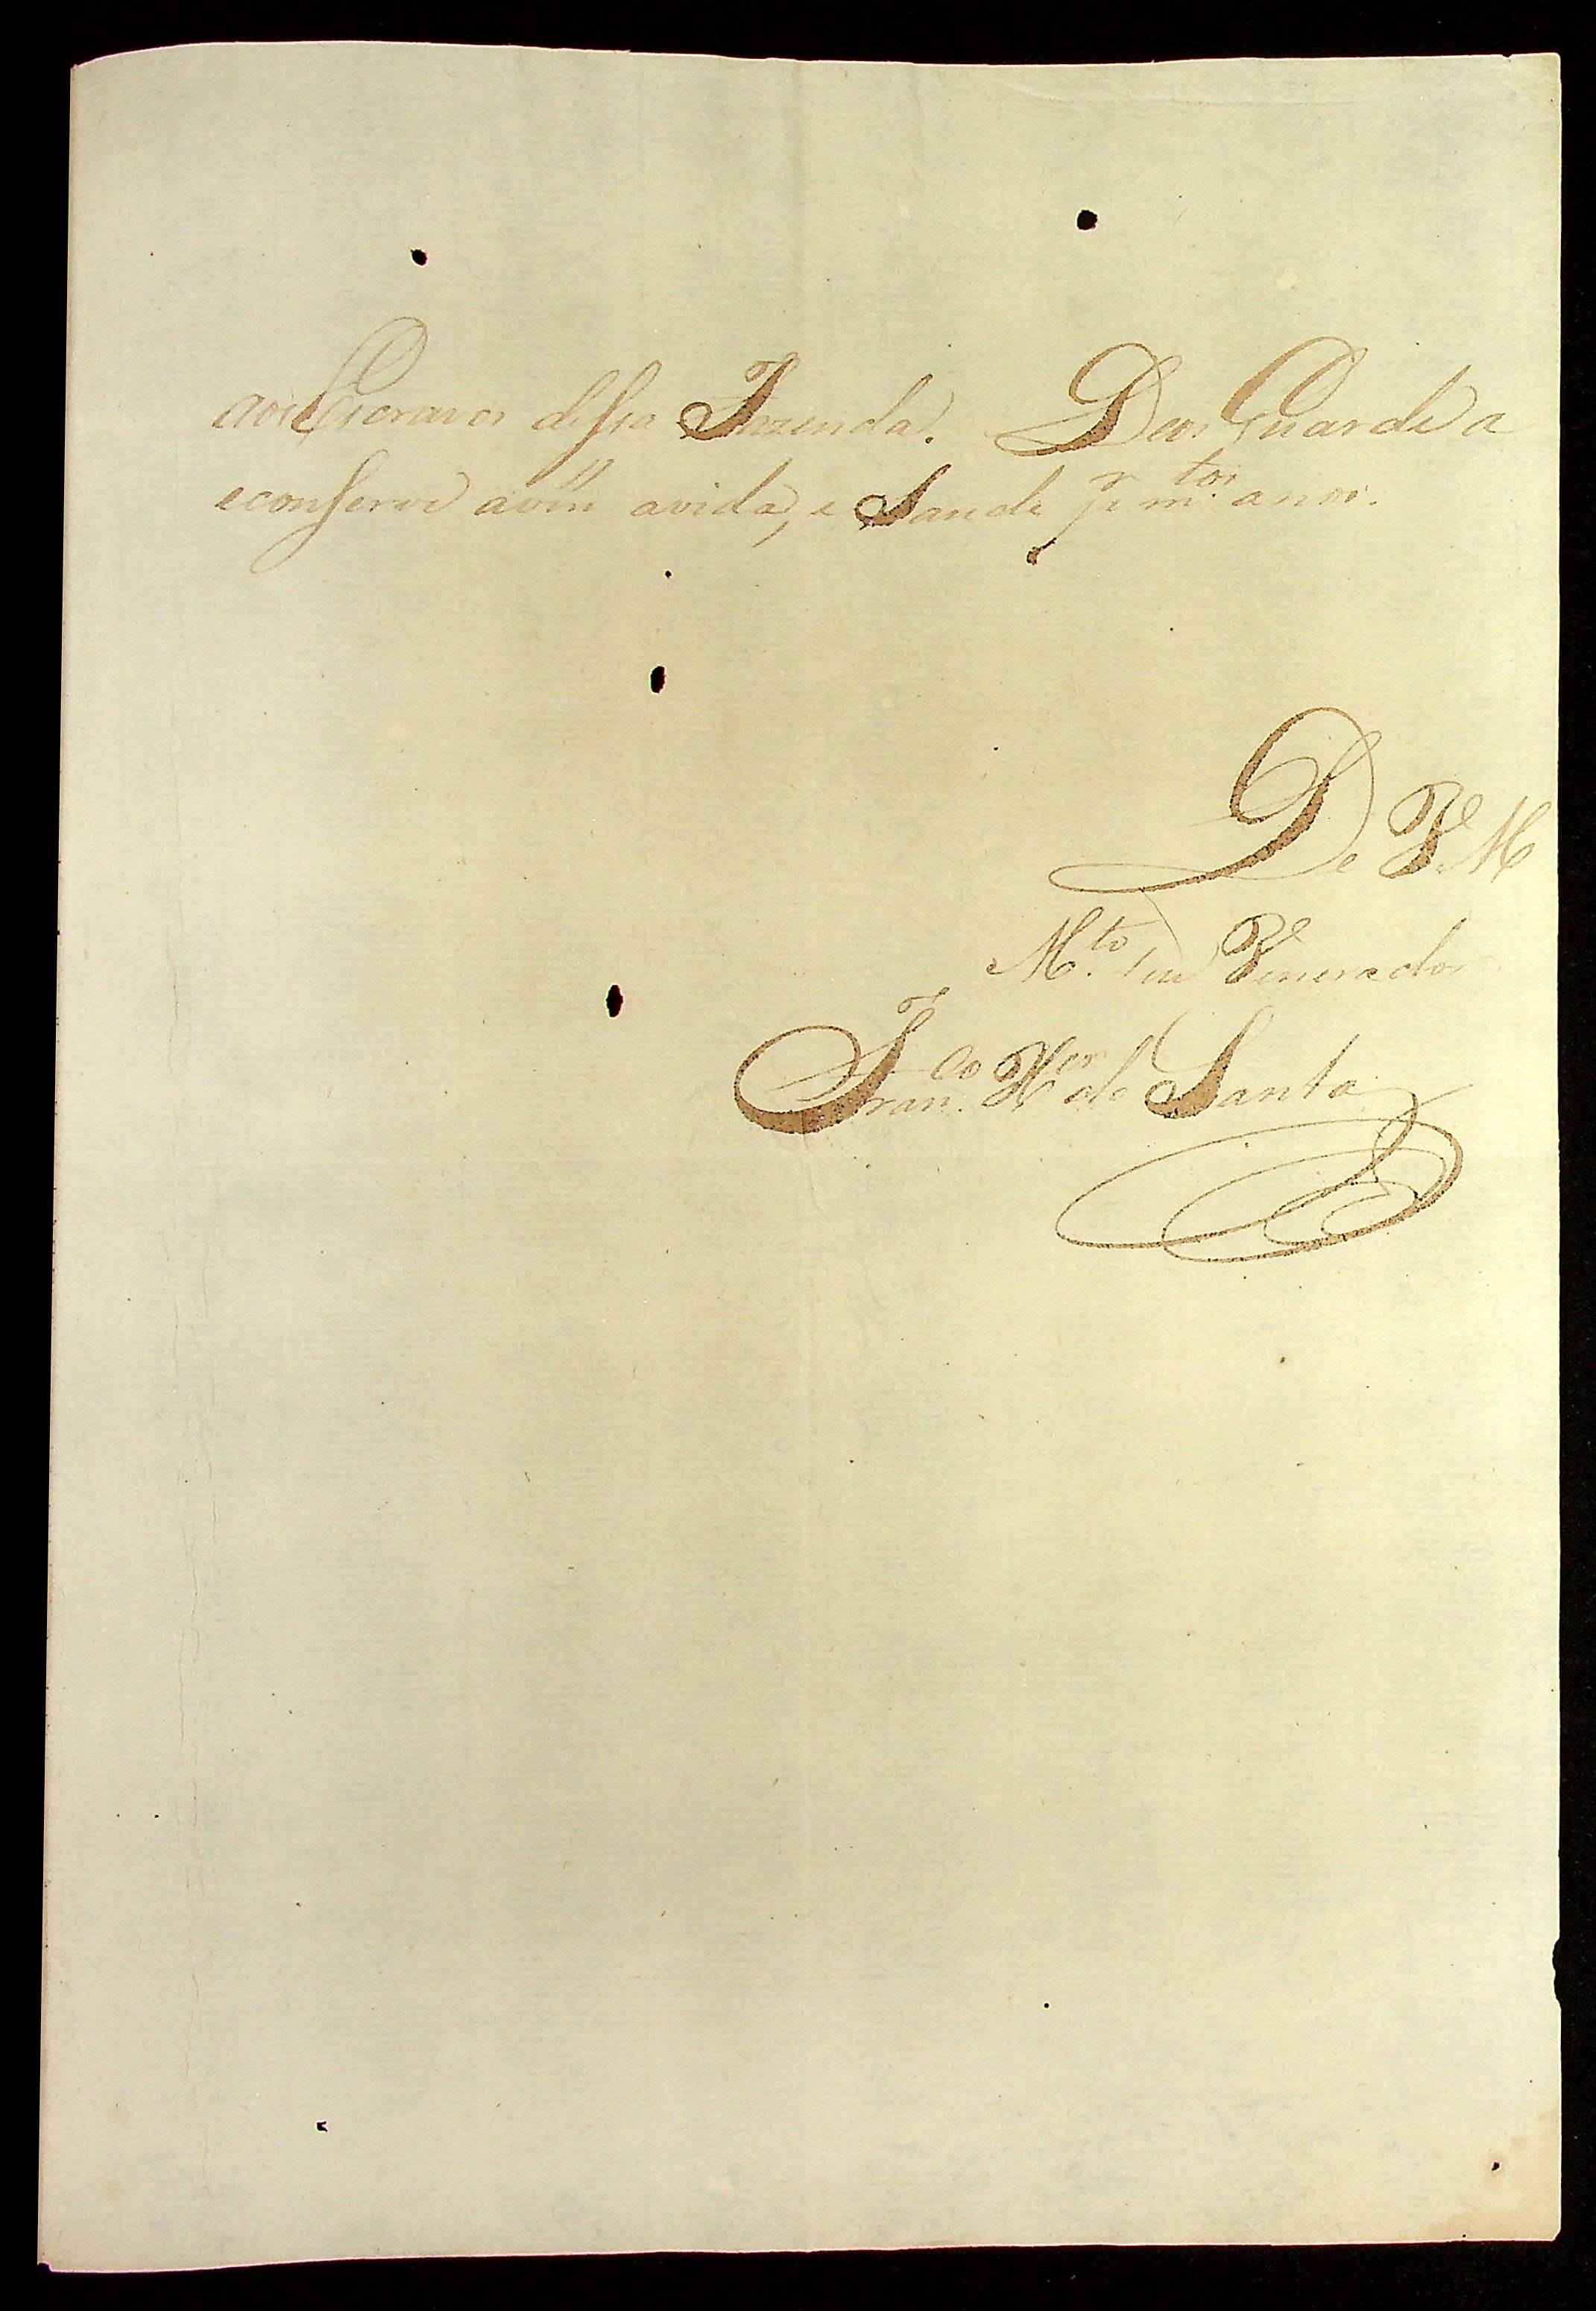 aos Escravos dessa Fazenda. Deos Guarde a
e conserve a vm a vida, e Saude pr mtos anos.
De V M
Mto seu Venerador
Franco Xer de Santa